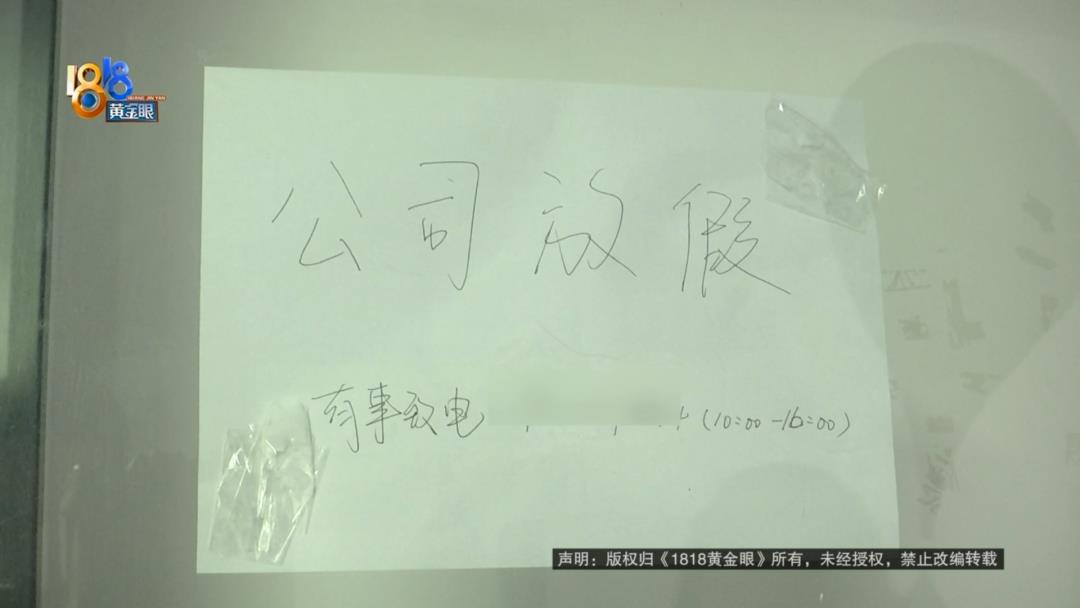 1818
HUANG JIN YAN
黄金眼
公司放假
有事致电
(10:00-16:00)
声明：版权归《1818黄金眼》所有，未经授权，禁止改编转载